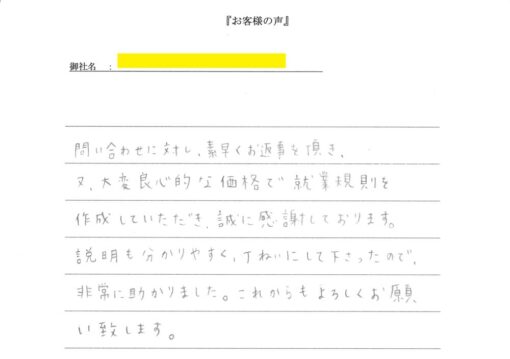 『お客様の声』
御社名 :
問い合わせに対し、素早くお返事を頂き、
又、大変良心的な価格で就業規則を
作成していただき、誠に感謝しております。
説明も分かりやすく、丁ねいにして下さったので、
非常に助かりました。これからもよろしくお願
い致します。